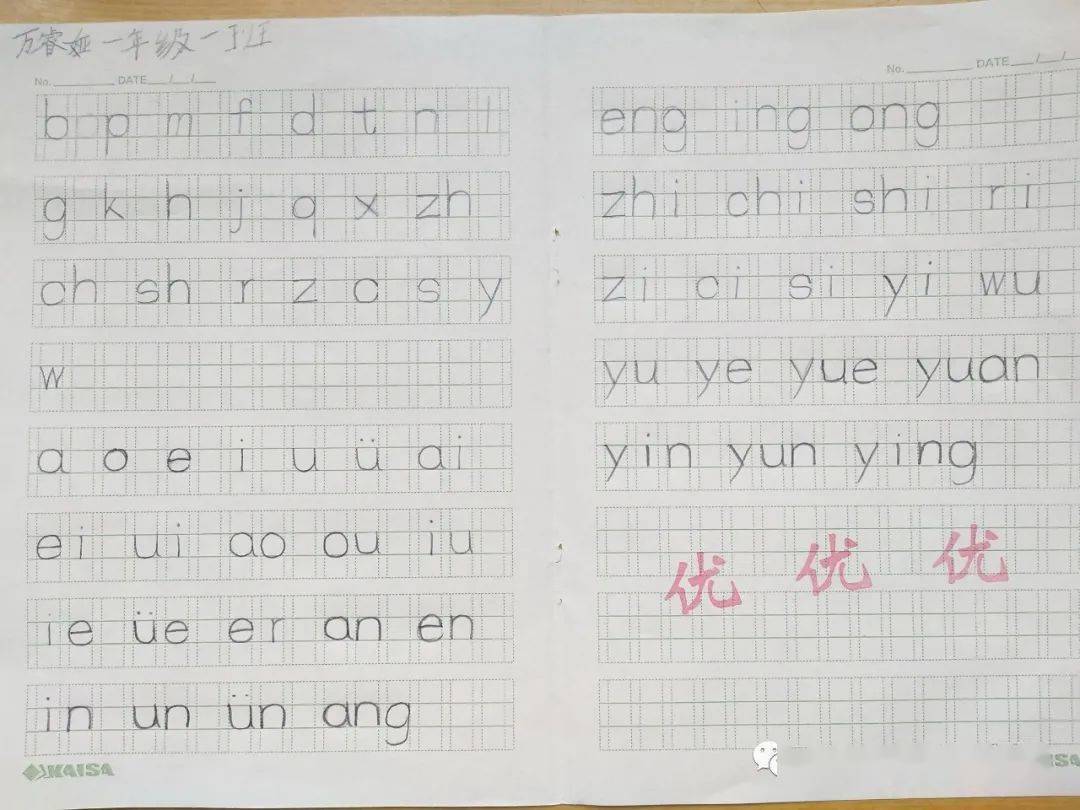 万睿娅 一年级一班
No. DATE / /
b p m f d t n l
g k h j q x zh
ch sh r z c s y
w
a o e i u ü ai
ei ui ao ou iu
ie üe er an en
in un ün ang
KAISA
No. DATE / /
eng ing ong
zhi chi shi ri
zi ci si yi wu
yu ye yue yuan
yin yun ying
优 优 优